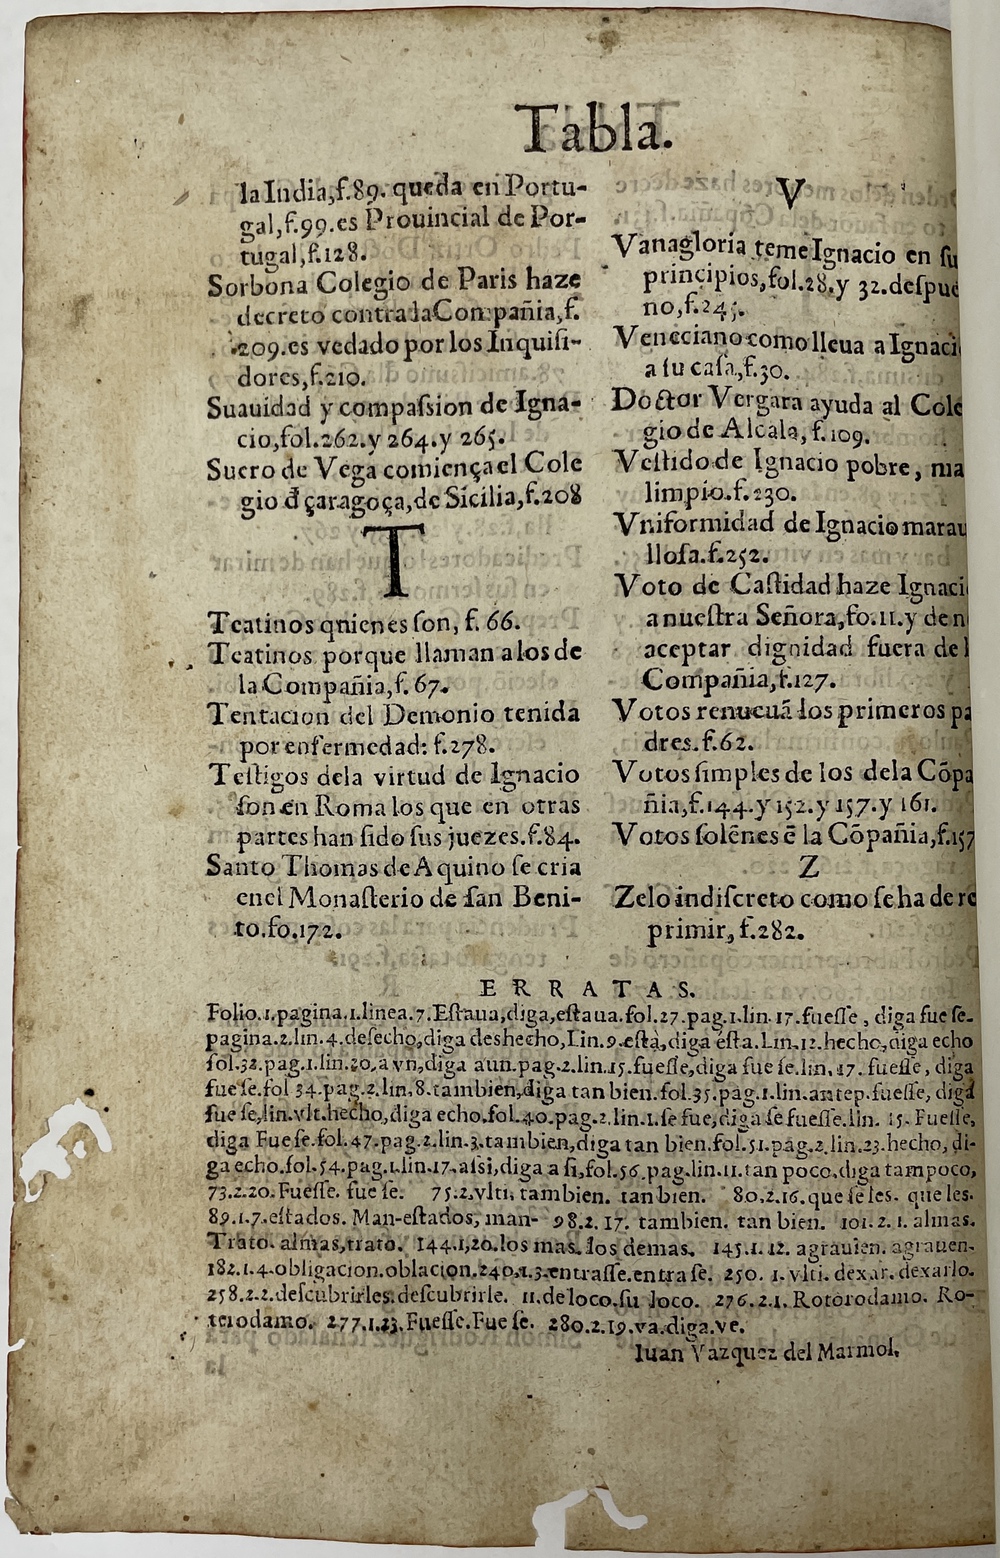 Tabla.
la India,f.89. queda en Portu-
gal,f.99.es Prouincial de Por-
tugal,f.128.
Sorbona Colegio de Paris haze
decreto contra la Compañia,f.
209.es vedado por los Inquiſi-
dores,f.210.
Suauidad y compaſsion de Igna-
cio,fol.262.y 264.y 265.
Suero de Vega comiença el Cole
gio đ çaragoça,de Sicilia,f.208
T
Teatinos qnienes ſon, f. 66.
Teatinos porque llaman a los de
la Compañia,f. 67.
Tentacion del Demonio tenida
por enfermedad: f.278.
Teſtigos dela virtud de Ignacio
ſon en Roma los que en otras
partes han ſido ſus juezes.f.84.
Santo Thomas de Aquino ſe cria
enel Monaſterio de ſan Beni-
to.fo.172.
V
Vanagloria teme Ignacio en ſu
principios,fol.28.y 32.deſpue
no,f.245.
Veneciano como lleua a Ignaci
a ſu caſa,f.30.
Doctor Vergara ayuda al Cole
gio de Alcala, f.109.
Veſtido de Ignacio pobre, ma
limpio.f.230.
Vniformidad de Ignacio marau
lloſa.f.252.
Voto de Caſtidad haze Ignaci
a nueſtra Señora,fo.11.y de n
aceptar dignidad fuera de l
Compañia,f.127.
Votos renueuã los primeros pa
dres.f.62.
Votos ſimples de los dela Cõpa
ñia,f.144.y 152.y 157.y 161.
Votos ſolẽnes ẽ la Cõpañia,f.157
Z
Zelo indiſcreto como ſe ha de re
primir, f.282.
ERRATAS.
Folio.1.pagina.1.linea.7.Eſtaua,diga,eſtaua.fol.27.pag.1.lin.17.fueſſe, diga fue ſe.
pagina.2.lin.4.deſecho,diga deshecho,Lin.9.eſtà,diga eſta.Lin.12.hecho,diga echo
fol.32.pag.1.lin.20.a vn,diga aun.pag.2.lin.15.fueſſe,diga fue ſe.lin.17. fueſſe, diga
fue ſe.fol 34.pag.2.lin.8.tambien,diga tan bien.fol.35.pag.1.lin.antep.fueſſe, diga
fue ſe,lin.vlt.hecho,diga echo.fol.40.pag.2.lin.1.ſe fue,diga ſe fueſſe.lin. 15. Fueſſe,
diga Fue ſe.fol.47.pag.2.lin.3.tambien,diga tan bien.fol.51.pag.2.lin.23.hecho, di-
ga echo.fol.54.pag.1.lin.17.aſsi,diga a ſi,fol.56.pag.lin.11.tan poco,diga tampoco,
73.2.20. Fueſſe. fue ſe. 75.2.vlti. tambien. tan bien. 80.2.16.que ſe les. que les.
89.1.7.eſtados. Man-eſtados, man- 98.2.17. tambien. tan bien. 101.2.1. almas.
Trato. almas,trato. 144.1,20.los mas. los demas. 145.1.12. agrauien. agrauen.
182.1.4.obligacion.oblacion.240.1.3.entraſſe.entra ſe. 250. 1.vlti. dexar. dexarlo.
258.2.2.deſcubrirles.deſcubrirle. 11.de loco.ſu loco. 276.2.1. Rotorodamo. Ro-
terodamo. 277.1.23.Fueſſe.Fue ſe. 280.2.19.va.diga.ve.
Iuan Vazquez del Marmol.